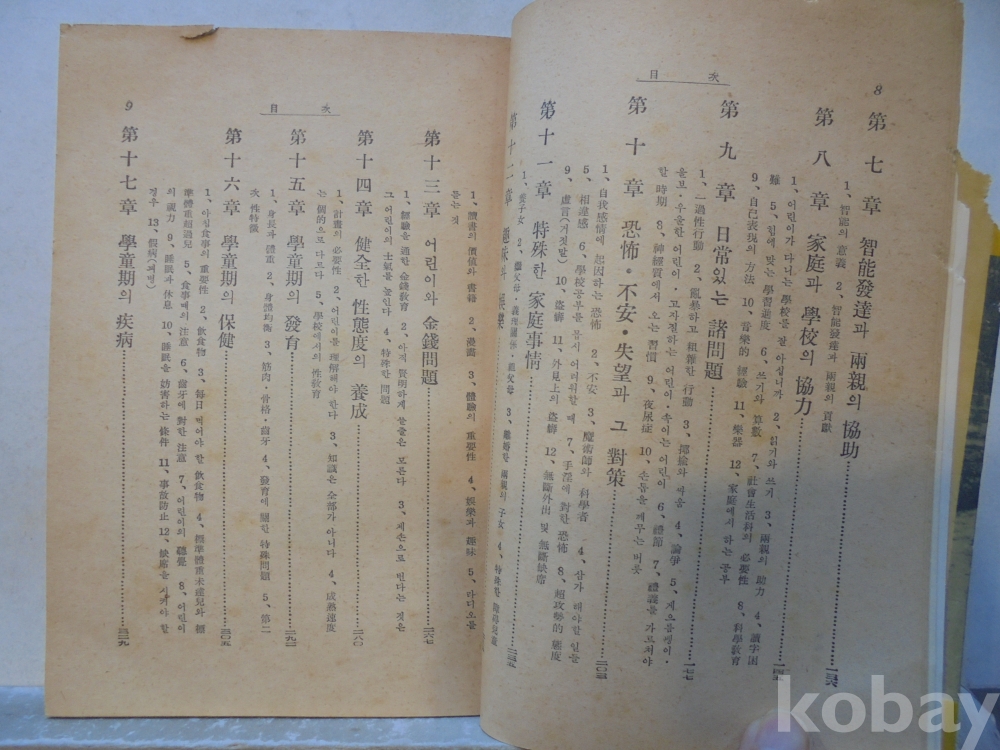 8
目次
第七章 智能發達과 兩親의 協助
1、智能의 意義 2、智能發達과 兩親의 貢獻
第八章 家庭과 學校의 協力
1、어린이가 다니는 學校를 잘 아십니까 2、읽기와 쓰기 3、兩親의 助力 4、讀字困
難 5、힘에 맞는 學習進度 6、쓰기와 算數 7、社會生活科의 必要性 8、科學敎育
9、自己表現의 方法 10、音樂的 經驗 11、樂器 12、家庭에서 하는 공부
第九章 日常있는 諸問題
1、一過性行動 2、亂暴하고 粗雜한 行動 3、揶揄와 싸움 4、論爭 5、게으름뱅이・
울보・우울한 어린이・고자질하는 어린이・속이는 어린이 6、禮節 7、禮義를 가르쳐야
할 時期 8、神經質에서 오는 習慣 9、夜尿症 10、손톱을 깨무는 버릇
一七七
第十章 恐怖・不安・失望과 그 對策
1、自我感情에 起因하는 恐怖 2、不安 3、魔術師와 科學者 4、삼가 해야할 일들
5、相違感 6、學校공부를 몹시 어려워할 때 7、手淫에 對한 恐怖 8、超攻勢的 態度
9、虛言(거짓말) 10、盜癖 11、外見上의 盜癖 12、無斷外出 및 無斷缺席
二〇三
第十一章 特殊한 家庭事情
第十二章 趣味와 娛樂
9
目次
1、讀書의 價値와 書籍 2、漫畵 3、體驗의 重要性 4、娛樂과 趣味 5、라디오를
듣는 것
第十三章 어린이와 金錢問題
二六七
1、經驗을 通한 金錢敎育 2、아직 賢明하게 쓸줄은 모른다 3、제손으로 번다는 것은
그 어린이의 士氣를 높인다 4、特殊한 問題
第十四章 健全한 性態度의 養成
二八〇
1、計畫의 必要性 2、어린이를 理解해야 한다 3、知識은 全部가 아니다 4、成熟速度
는 個個的으로 다르다 5、學校에서의 性敎育
第十五章 學童期의 發育
二九二
1、身長과 體重 2、身體均衡 3、筋肉・骨格・齒牙 4、發育에 關한 特殊問題 5、第二
次 性特徵
第十六章 學童期의 保健
三〇五
1、아침食事의 重要性 2、飮食物 3、每日 먹어야 할 飮食物 4、標準體重未達兒와 標
準體重超過兒 5、食事때의 注意 6、齒牙에 對한 注意 7、어린이의 聽覺 8、어린이
의 視力 9、睡眠과 休息 10、睡眠을 妨害하는 條件 11、事故防止 12、缺席을 시켜야 할
경우 13、假病(꾀병)
第十七章 學童期의 疾病
三二九